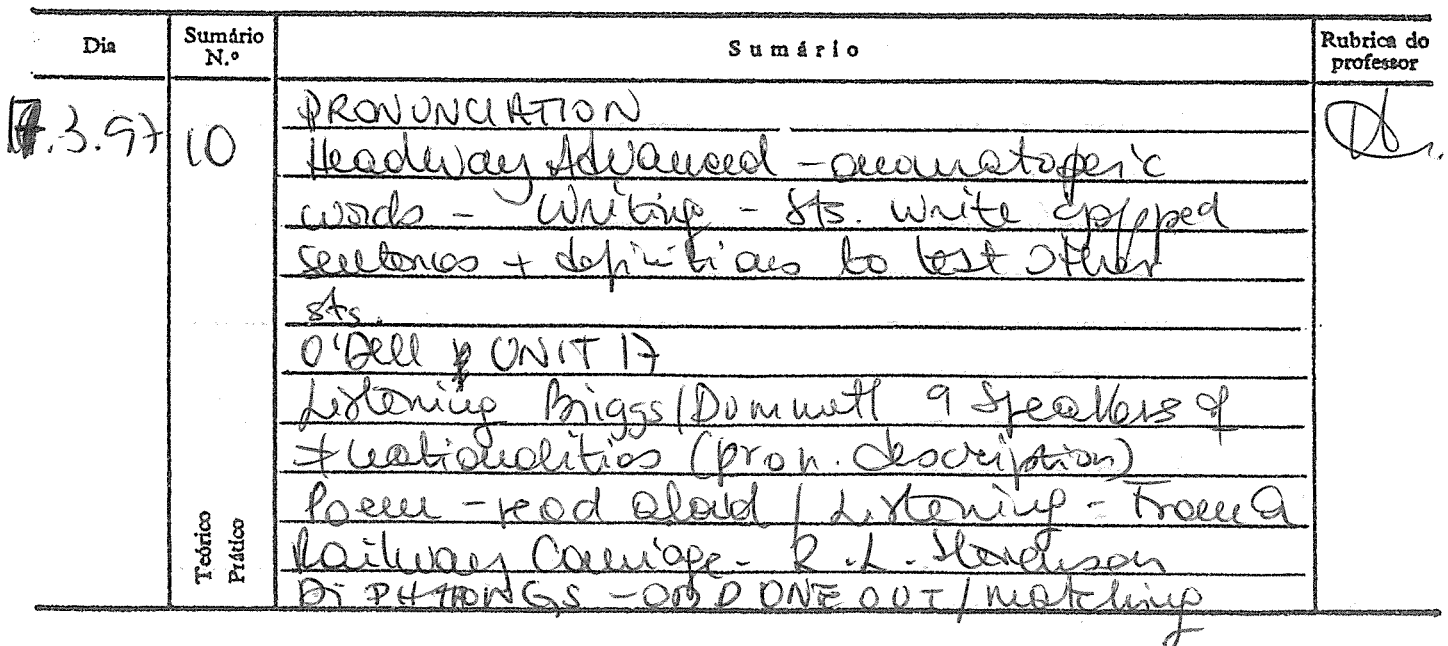 Dia Sumário N.º Sumário Rubrica do professor
.3.97 10 PRONUNCIATION
Headway Advanced - onomatopeic
words - Writing - sts. write gapped
sentences + definitions to test other
sts.
O'Dell UNIT 17
Listening Briggs/Dummett 9 speakers of
≠ nationalities (pron. description)
Poem - read aloud / Listening - From a
Railway Carriage - R.L. Stevenson
DIPHTHONGS - ODD ONE OUT / matching
Teórico
Prático